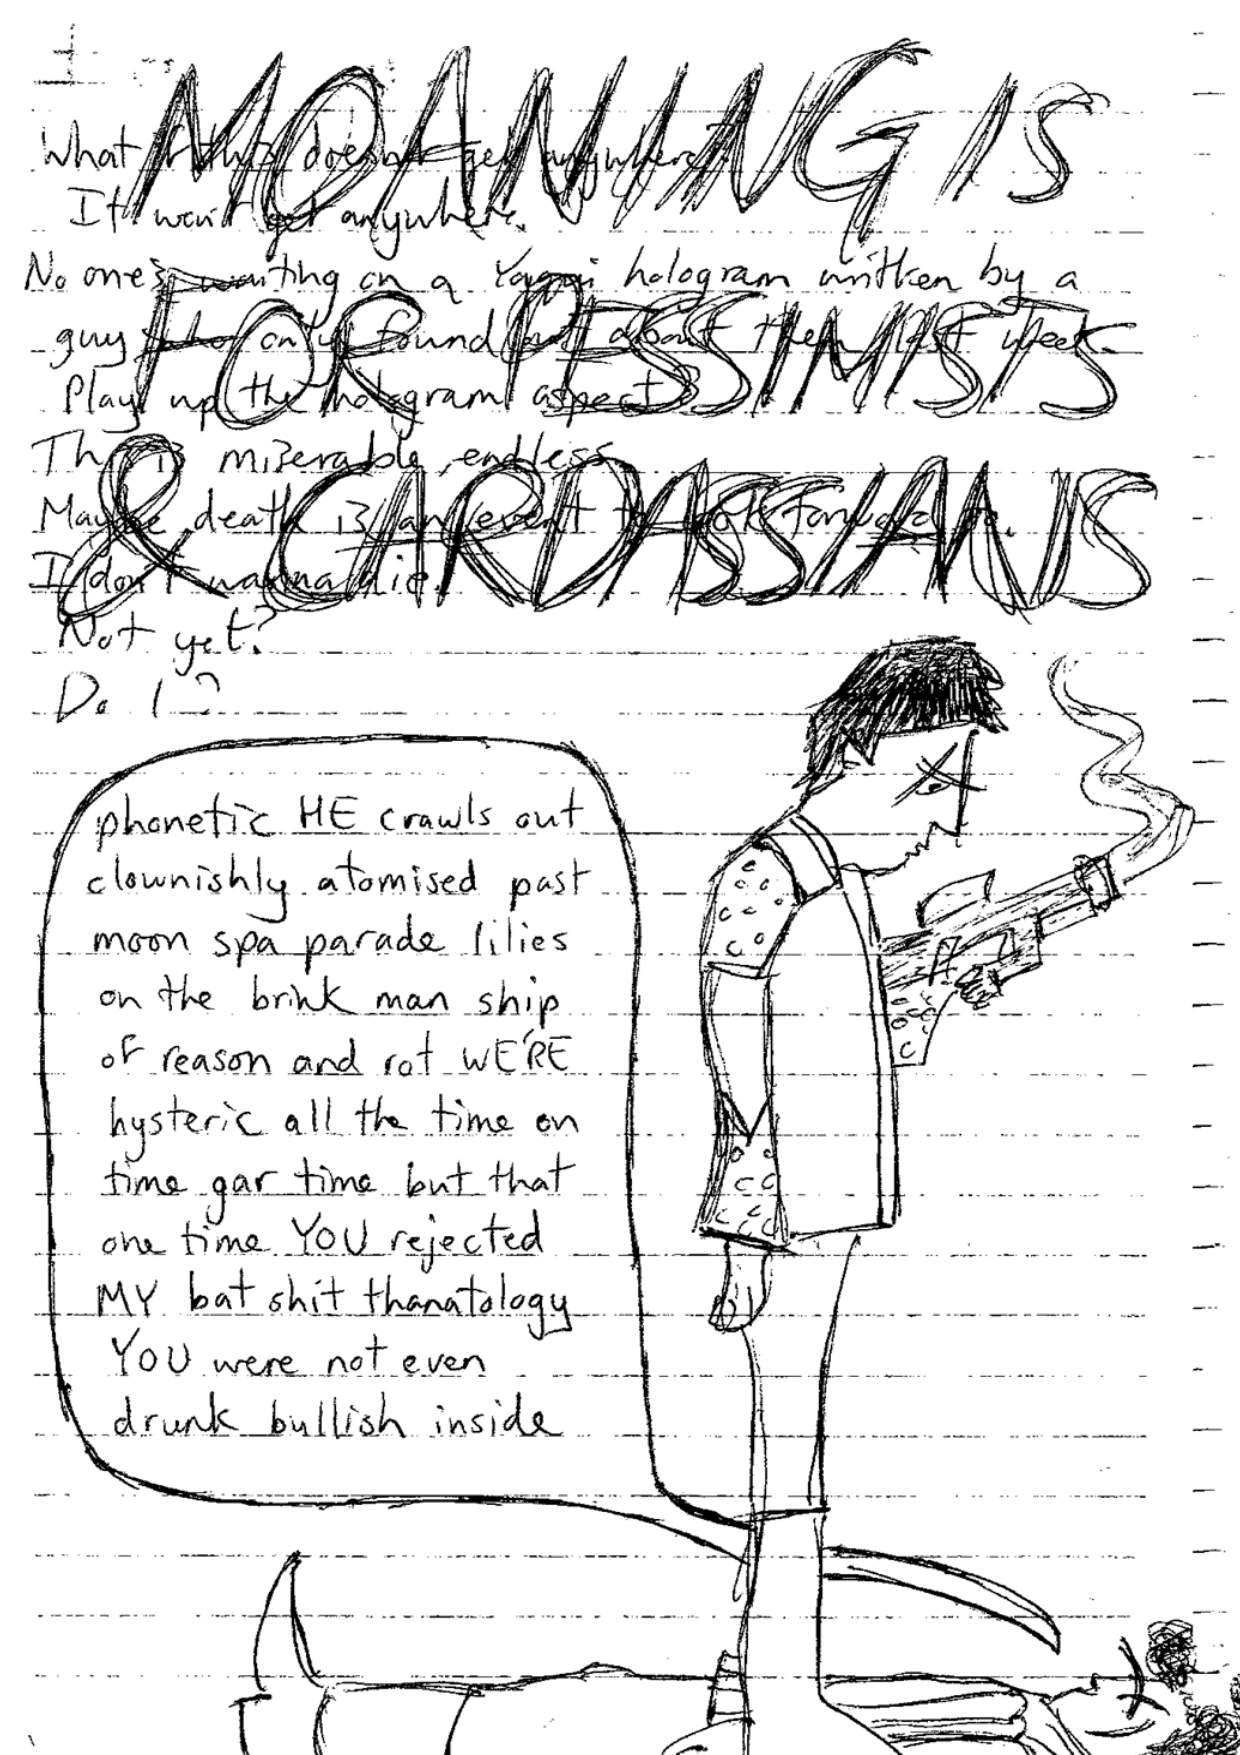 MOANING IS
FOR PESSIMISTS
& CARDASSIANS
What if this doesn't get anywhere?
It won't get anywhere.
No one's waiting on a Yaqui hologram written by a
guy who only found out about them last week.
Play up the hologram aspect?
This is miserable, endless
Maybe death is an event to look forward to.
I don't wanna die.
Not yet?
Do I?
phonetic HE crawls out
clownishly atomised past
moon spa parade lilies
on the brink man ship
of reason and rot WE'RE
hysteric all the time on
time gar time but that
one time YOU rejected
MY bat shit thanatology
YOU were not even
drunk bullish inside